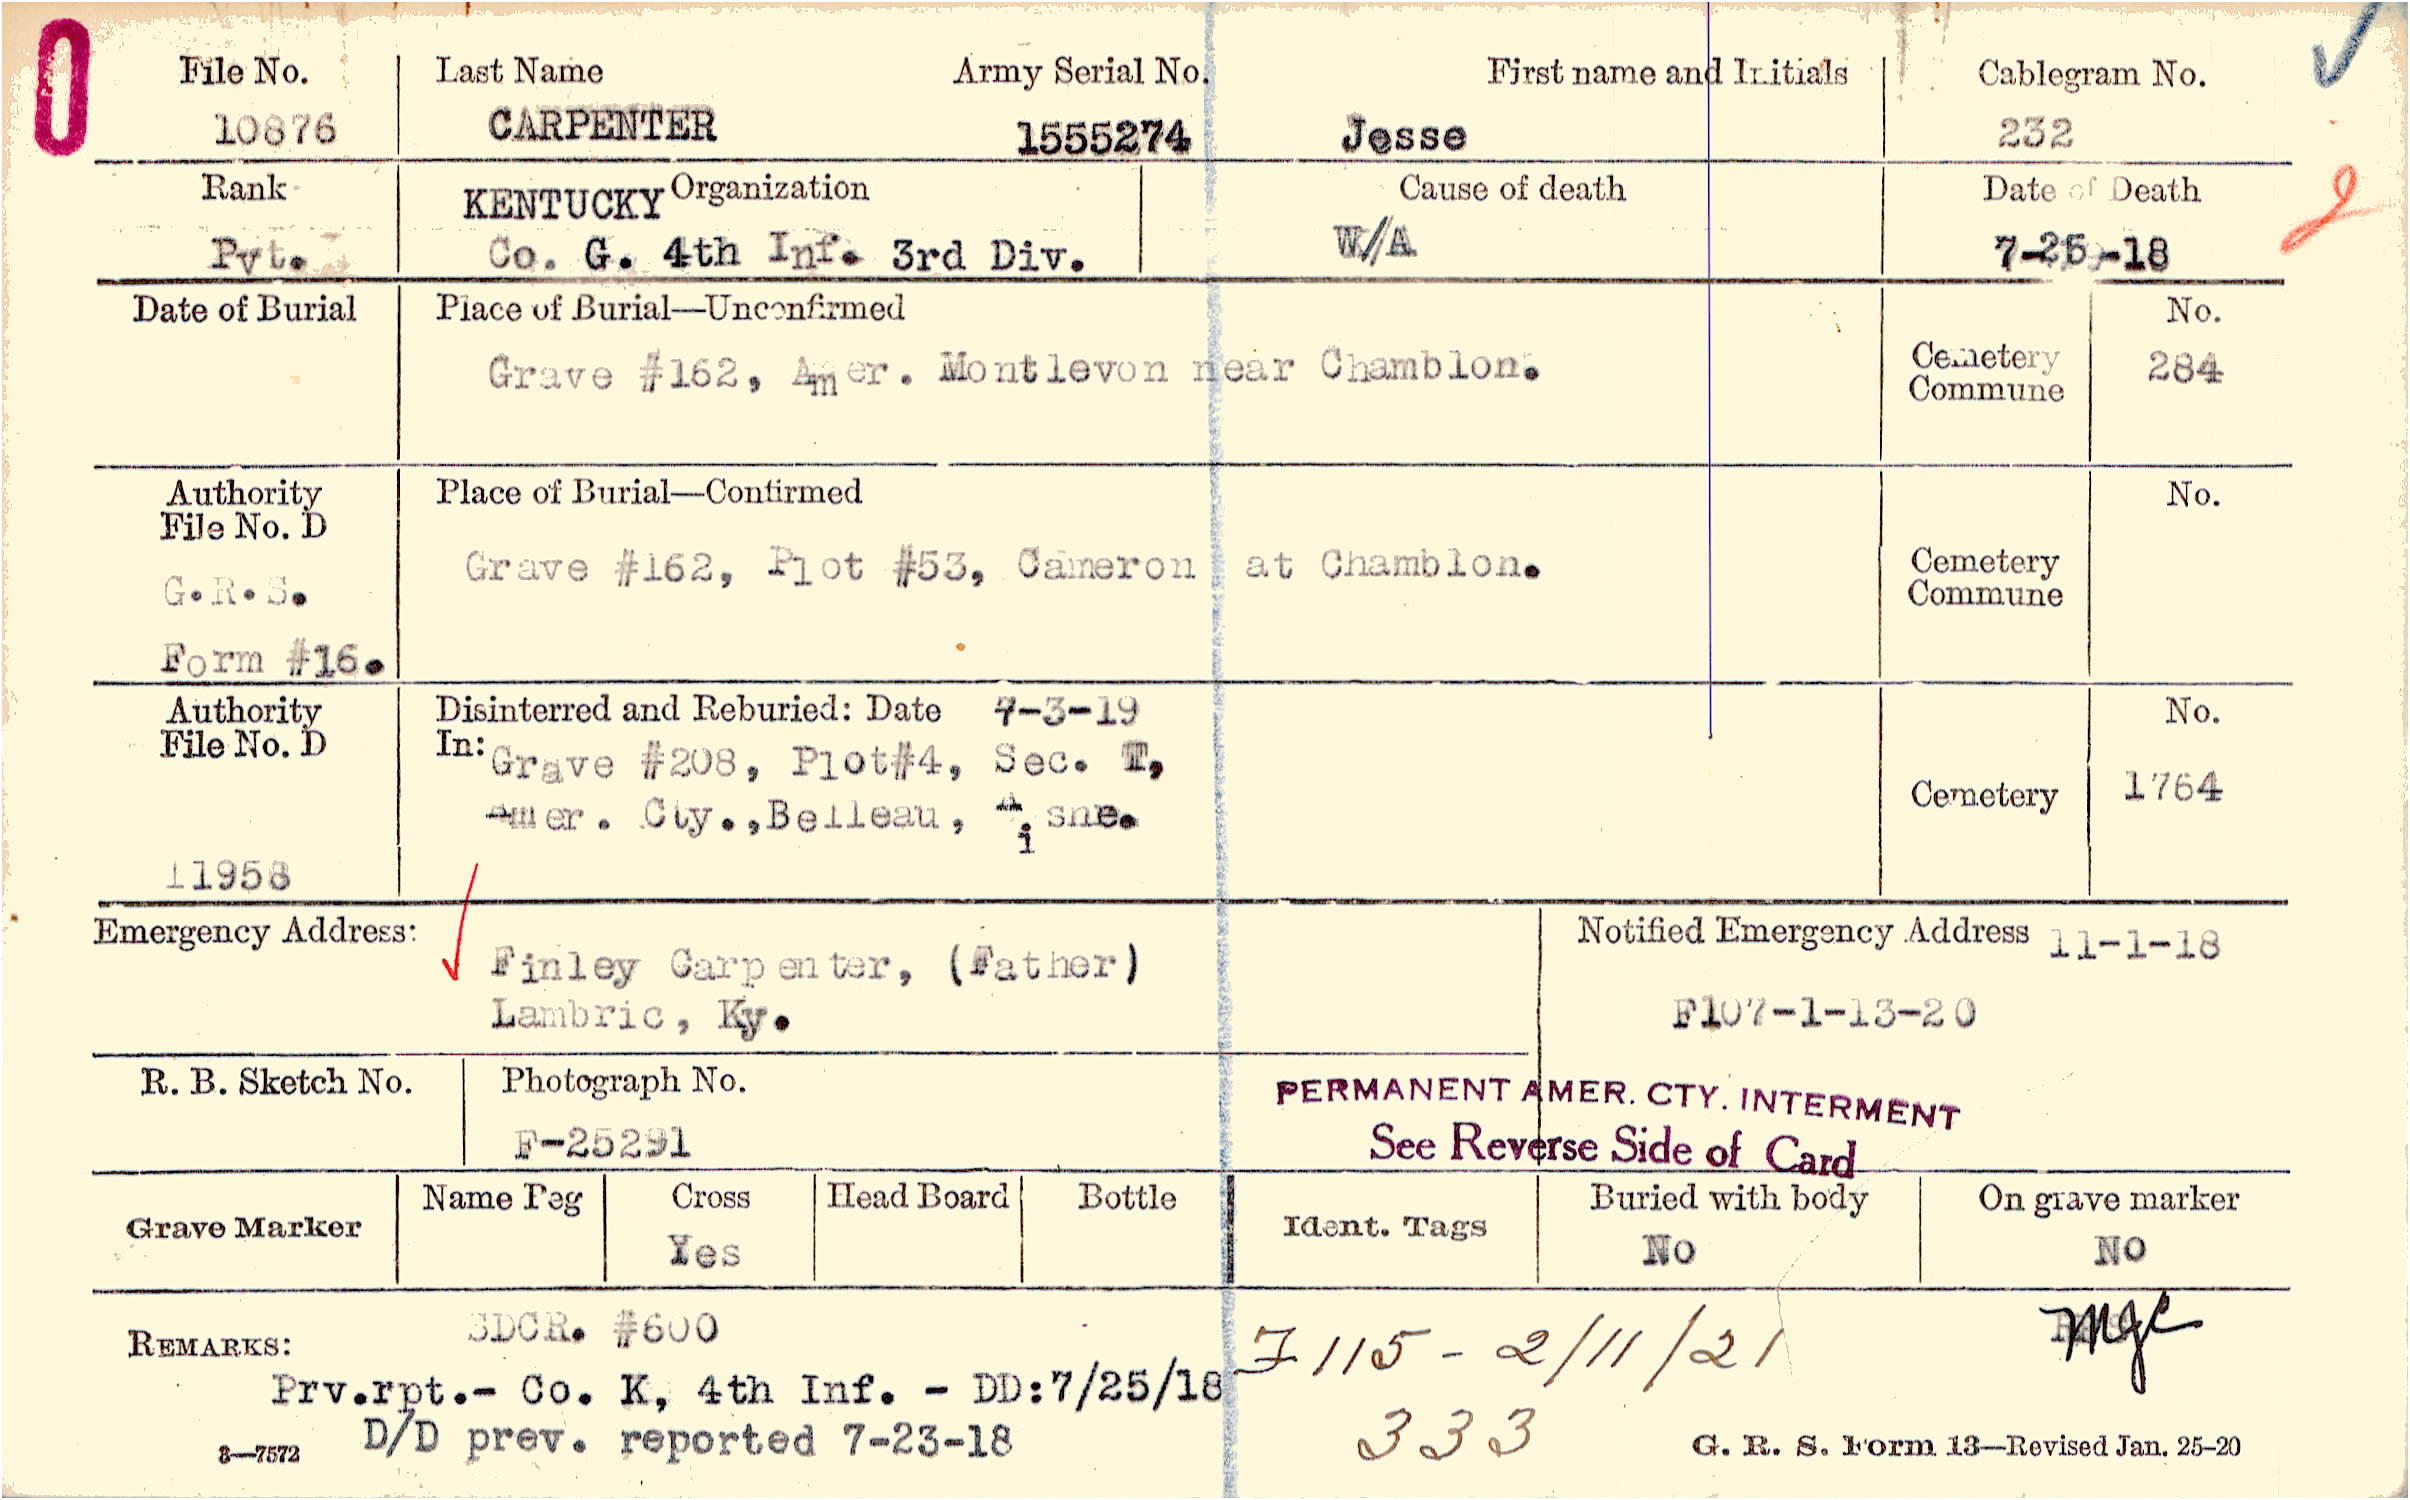 File No. Last Name Army Serial No. First name and Initials Cablegram No.
10876 CARPENTER 1555274 Jesse 232
Rank Organization Cause of death Date of Death
KENTUCKY
Pvt. Co. G. 4th Inf. 3rd Div. W/A 7-25-18
Date of Burial Place of Burial—Unconfirmed No.
Grave #162, Amer. Montlevon near Chamblon. Cemetery Commune 284
Authority File No. D Place of Burial—Confirmed No.
G.R.S. Grave #162, Plot #53, Cameron at Chamblon. Cemetery Commune
Form #16.
Authority File No. D Disinterred and Reburied: Date 7-3-19 No.
In: Grave #208, Plot#4, Sec. T,
Amer. Cty., Belleau, Aisne. Cemetery 1764
11958
Emergency Address: Notified Emergency Address 11-1-18
Finley Carpenter, (Father)
Lambric, Ky. F107-1-13-20
R. B. Sketch No. Photograph No.
F-25291
PERMANENT AMER. CTY. INTERMENT
See Reverse Side of Card
Grave Marker Name Peg Cross Head Board Bottle Ident. Tags Buried with body On grave marker
Yes No No
REMARKS: SDCR. #600
F115 - 2/11/21 MGC
Prv.rpt.- Co. K, 4th Inf. - DD:7/25/18
D/D prev. reported 7-23-18 333
8—7572 G. R. S. Form 13—Revised Jan. 25-20